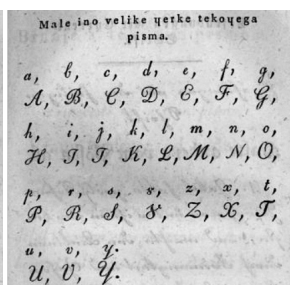 Male ino velike ɥerke tekoɥega
pisma.
a, b, c, d, e, f, g,
A, B, C, D, E, F, G,
h, i, j, k, l, m, n, o,
H, I, J, K, L, M, N, O,
p, r, s, 8, z, x, t,
P, R, S, 8, Z, X, T,
u, v, y.
U, V, Y.